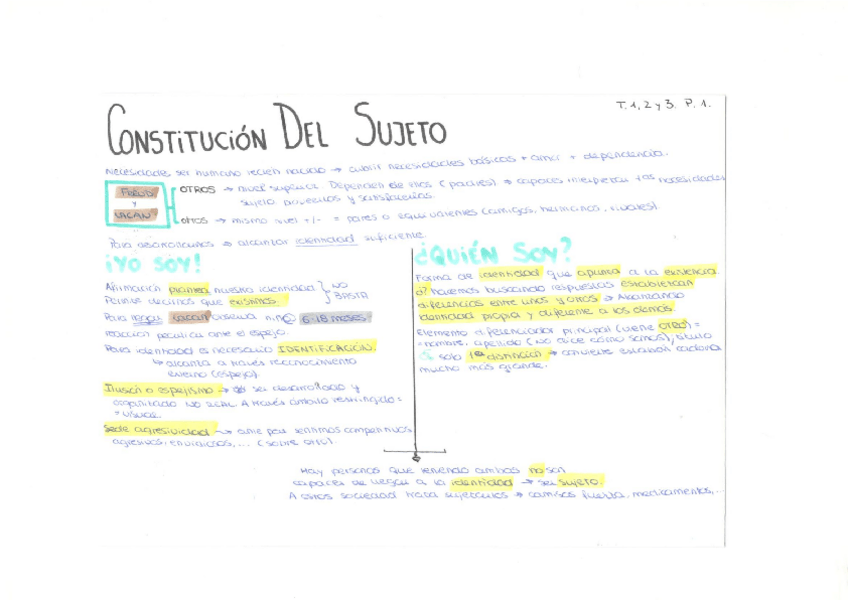 T. 1, 2 y 3. P. 1.
CONSTITUCIÓN DEL SUJETO
Necesidades ser humano recién nacido → cubrir necesidades básicas + amor + dependencia.
FREUD y LACAN
OTROS → nivel superior. Dependen de ellos (padres) → capaces interpretar las necesidades
sujeto, proveerlos y satisfacerlas.
otros → mismo nivel +/- = pares o equivalentes (amigos, hermanos, rivales)
Para → alcanzar identidad suficiente
¡YO SOY!
Afirmación plantea nuestra identidad
Permite decirnos que existimos
NO BASTA
Para llegar LACAN observa niño 6-18 meses.
reacción peculiar ante el espejo.
Para identidad es necesario IDENTIFICACIÓN.
↳ alcanza a través reconocimiento
externo (espejo).
Ilusión o espejismo → ser desarrollado y
organizado no A través ámbito restringido =
= visual.
Sede agresividad → ante par sentirnos competitivos,
agresivos, envidiosos, ... (sobre otro).
¿QUIÉN SOY?
Forma de identidad que apunta a la existencia
hacemos buscando respuestas establezcan
diferencias entre unos y otros → Alcanzando
identidad propia y diferente a los demás.
Elemento diferenciador principal (viene OTRO) =
= nombre, apellido (no dice cómo somos), título
solo 1ª distinción → conviene cadena
mucho más grande.
Hay personas que teniendo ambos no son
capaces de llegar a la identidad → ser sujeto.
A estos sociedad trata sujetarlos → camisas fuerza, medicamentos, ...